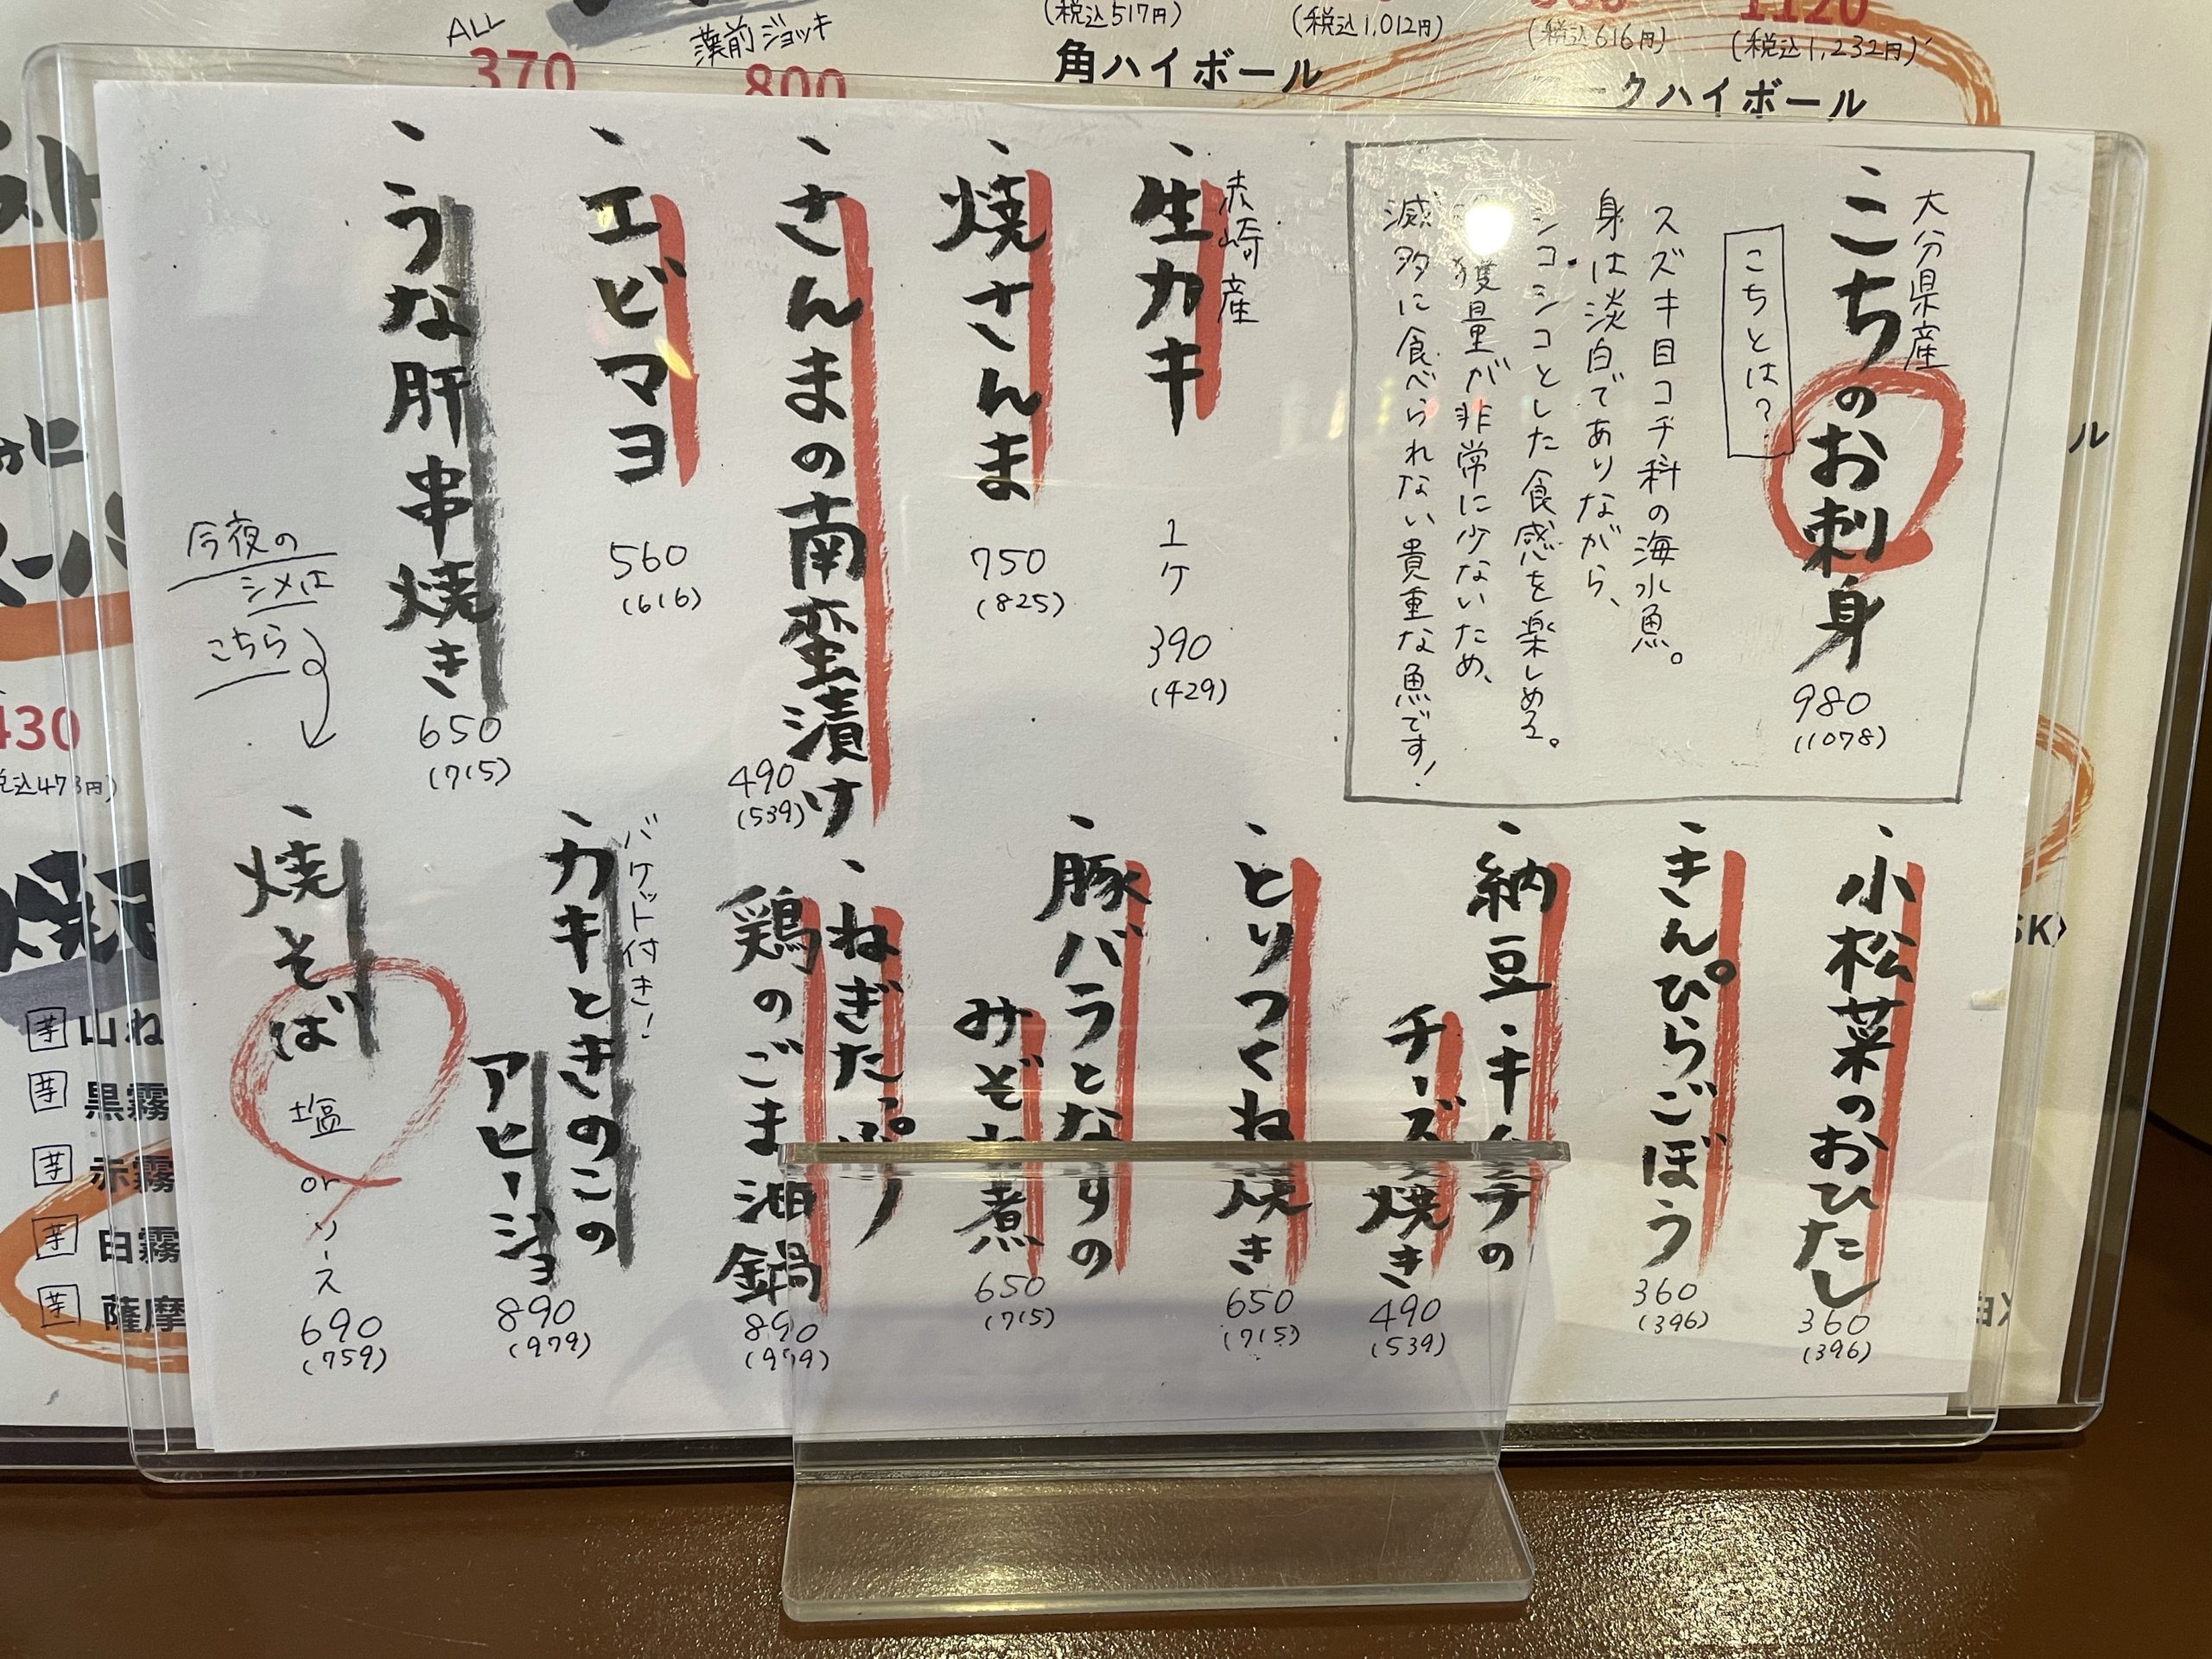 大分県産
こちのお刺身
980
(1078)
こちとは?
スズキ目コチ科の海水魚。
身は淡白でありながら、
シコシコとした食感を楽しめる。
獲量が非常に少ないため、
滅多に食べられない貴重な魚です!
赤崎産
生カキ
1ケ
390
(429)
焼さんま
750
(825)
さんまの南蛮漬け
490
(539)
エビマヨ
560
(616)
うな肝串焼き
650
(715)
小松菜のおひたし
360
(396)
きんぴらごぼう
360
(396)
納豆・キムチの
チーズ焼き
490
(539)
とりつくね焼き
650
(715)
豚バラとなすの
みぞれ煮
650
(715)
ねぎたっぷり
鶏のごま油鍋
890
(979)
バケット付き!
カキときのこの
アヒージョ
890
(979)
今夜の
シメは
こちら
焼そば
塩
or
ソース
690
(759)
ALL
370
薬前ジョッキ
800
(税込517円)
角ハイボール
(税込1,012円)
(税込616円)
1120
(税込1,232円)
クハイボール
430
税込473円)
芋 山ね
芋 黒霧
芋 赤霧
芋 白霧
芋 薩摩
ル